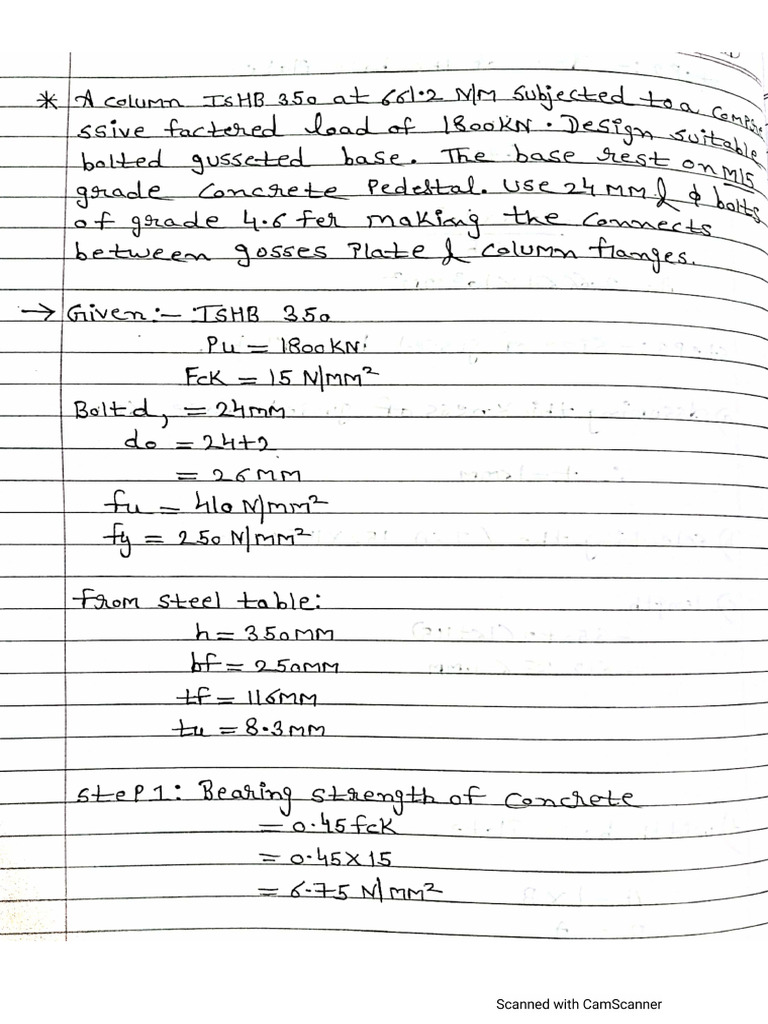 * A column ISHB 350 at 661.2 N/M subjected to a compre
ssive factered load of 1800KN. Design suitable
bolted gusseted base. The base rest on M15
grade concrete Pedestal. Use 24 MM & φ bolts
of grade 4.6 fer making the connects
between gosses Plate & column flanges.
→ Given:- ISHB 350
Pu = 1800KN.
FcK = 15 N/mm²
Bolt d, = 24mm.
do = 24+2
= 26MM
fu = 410 N/mm²
fy = 250 N/mm²
from steel table:
h = 350MM
bf = 250MM
tf = 116MM
tu = 8.3MM
steP 1: Bearing strength of concrete
= 0.45 fcK
= 0.45 X 15
= 6.75 N/MM²
Scanned with CamScanner